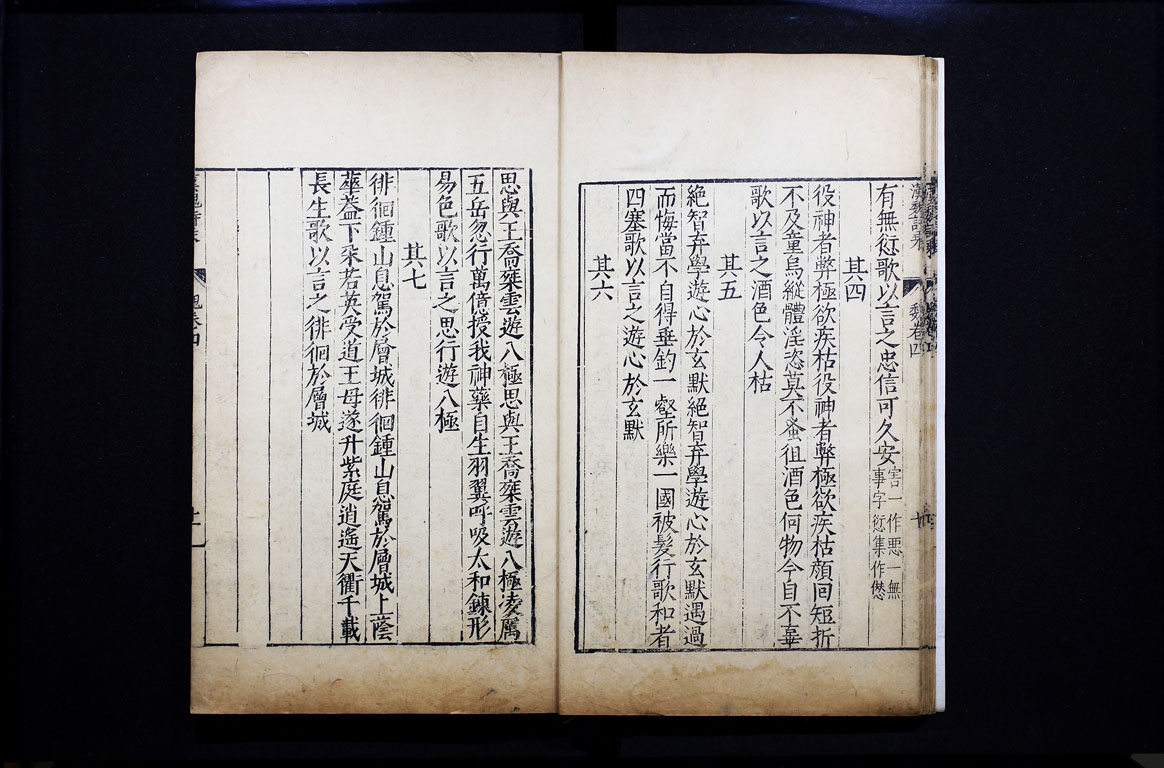 漢魏詩乘
魏卷四
有無愆歌以言之忠信可久安
害一作惡一無
事字愆集作𠎝
其四
役神者弊極欲疾枯役神者弊極欲疾枯顔回短折
不及童烏縱體淫恣莫不蚤徂酒色何物今自不辜
歌以言之酒色令人枯
其五
絶智弃學遊心於玄默絶智弃學遊心於玄默遇過
而悔當不自得垂釣一壑所樂一國被髮行歌和者
四塞歌以言之遊心於玄默
其六
思與王喬椉雲遊八極思與王喬椉雲遊八極凌厲
五岳忽行萬億授我神藥自生羽翼呼吸太和鍊形
易色歌以言之思行遊八極
其七
徘徊鍾山息駕於層城徘徊鍾山息駕於層城上蔭
華葢下采若英受道王母遂升紫庭逍遙天衢千載
長生歌以言之徘徊於層城